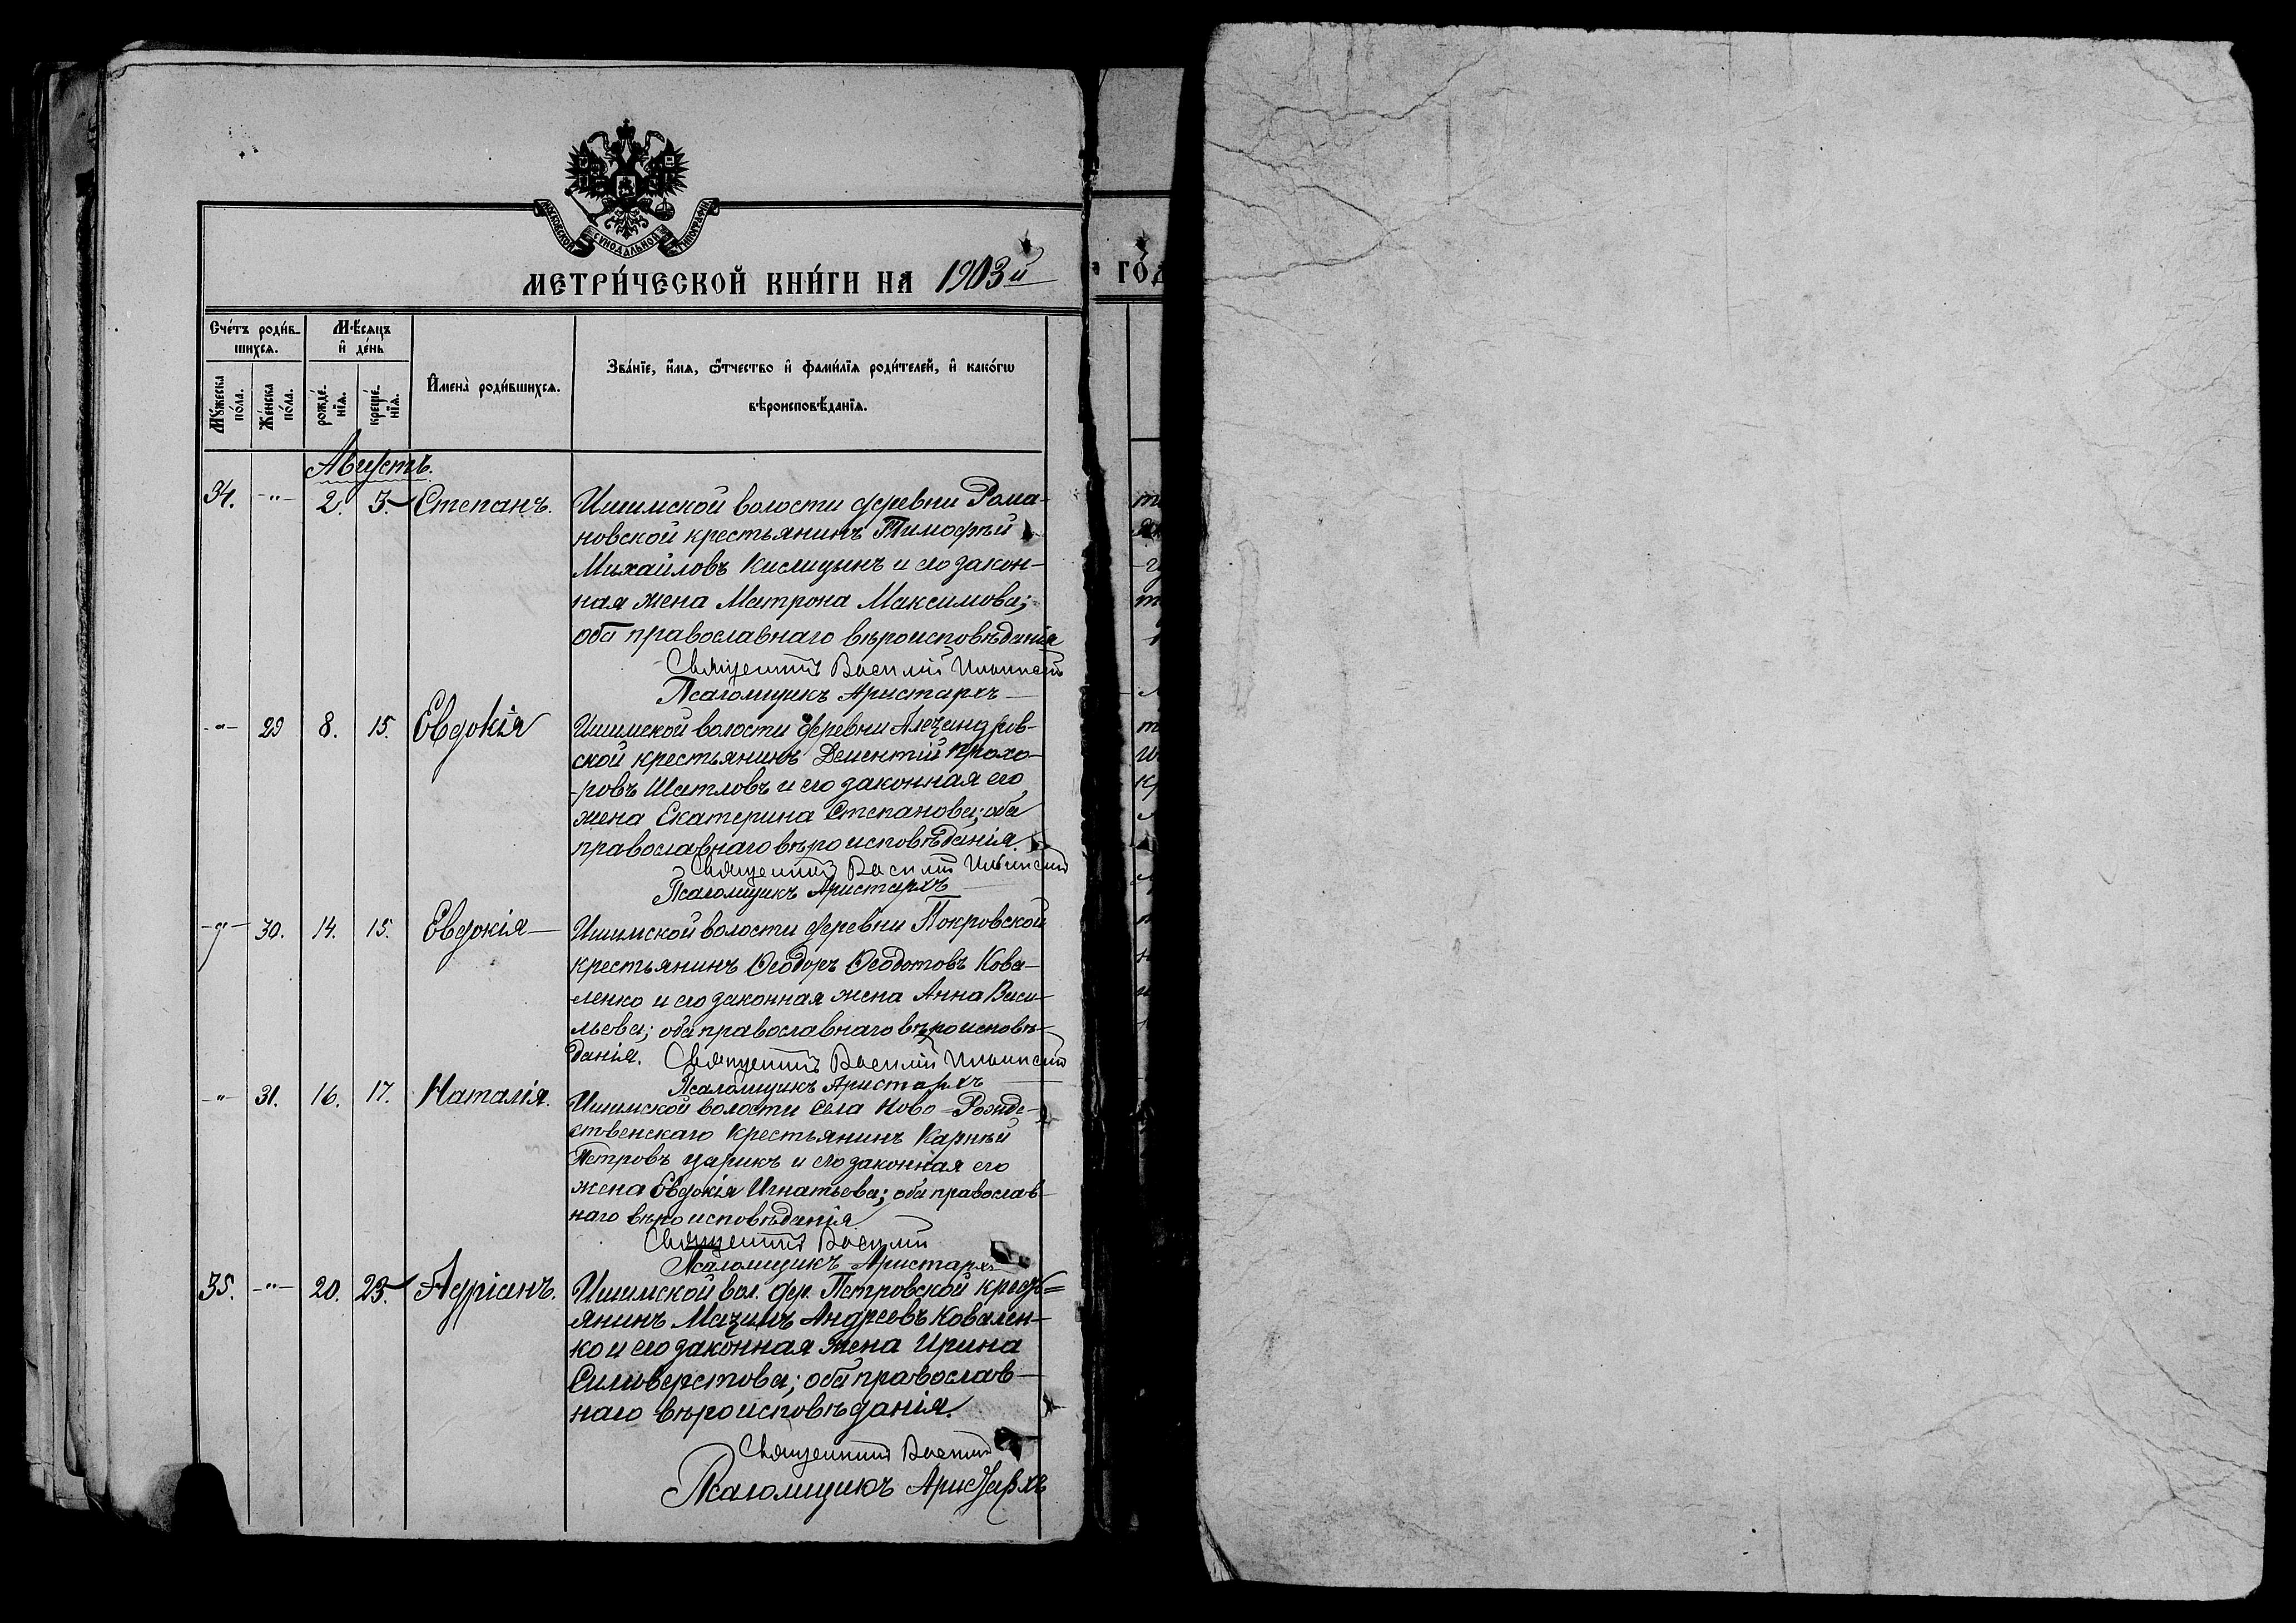 МОСКОВСКОЙ СУНОДАЛЬНОЙ ТИПОГРАФІИ
МЕТРИ́ЧЕСКОЙ КНИ́ГИ НА 1903й
ГОД
Сче́тъ роди́в-
шихся.
Мѣ́сяцъ
и҆ де́нь
И҆мена̀ роди́вшихся.
Зва́нїе, и҆́мя, ѻ҆́тчество и҆ фами́лїя роди́телей, и҆ како́гѡ
вѣроисповѣ́данїя.
Мꙋ́жеска
по́ла.
Же́нска
по́ла.
рожде́-
нїя.
креще́-
нїя.
Августъ.
34. -"- 2. 3. Степанъ. Ишимской волости деревни Рома-
новской крестьянинъ Тимофѣй
Михайловъ Кислицынъ и его закон-
ная жена Матрона Максимова;
оба православнаго вѣроисповѣданія
Священникъ Василій Ильинскій
Псаломщикъ Аристархъ
-"- 29 8. 15. Евдокія Ишимской волости деревни Алеѯандров-
ской крестьянинъ Дементій Прохо-
-ровъ Шатловъ и его законная его
жена Екатерина Степанова; оба
православнаго вѣроисповѣданія.
Священникъ Василій Ильинскій
Псаломщикъ Аристархъ
-"- 30. 14. 15. Евдокія Ишимской волости деревни Покровской
крестьянинъ Ѳеодоръ Ѳеодотовъ Кова-
ленко и его законная жена Анна Васи-
льева; оба православнаго вѣроисповѣ-
данія. Священникъ Василій Ильинскій
Псаломщикъ Аристархъ
-"- 31. 16. 17. Наталія. Ишимской волости села Ново-Рожде-
ственскаго крестьянинъ Карпѣй
Петровъ Царикъ и его законная его
жена Евдокія Игнатьева; оба православ-
наго вѣроисповѣданія.
Священникъ Василій
Псаломщикъ Аристархъ
35. -"- 20. 23. Адріанъ. Ишимской вол. дер. Петровской кресть=
янинъ Маѯимъ Андреевъ Ковален-
ко и его законная жена Ирина
Силиверстова; оба православ-
наго вѣроисповѣданія.
Священникъ Василій
Псаломщикъ Аристархъ